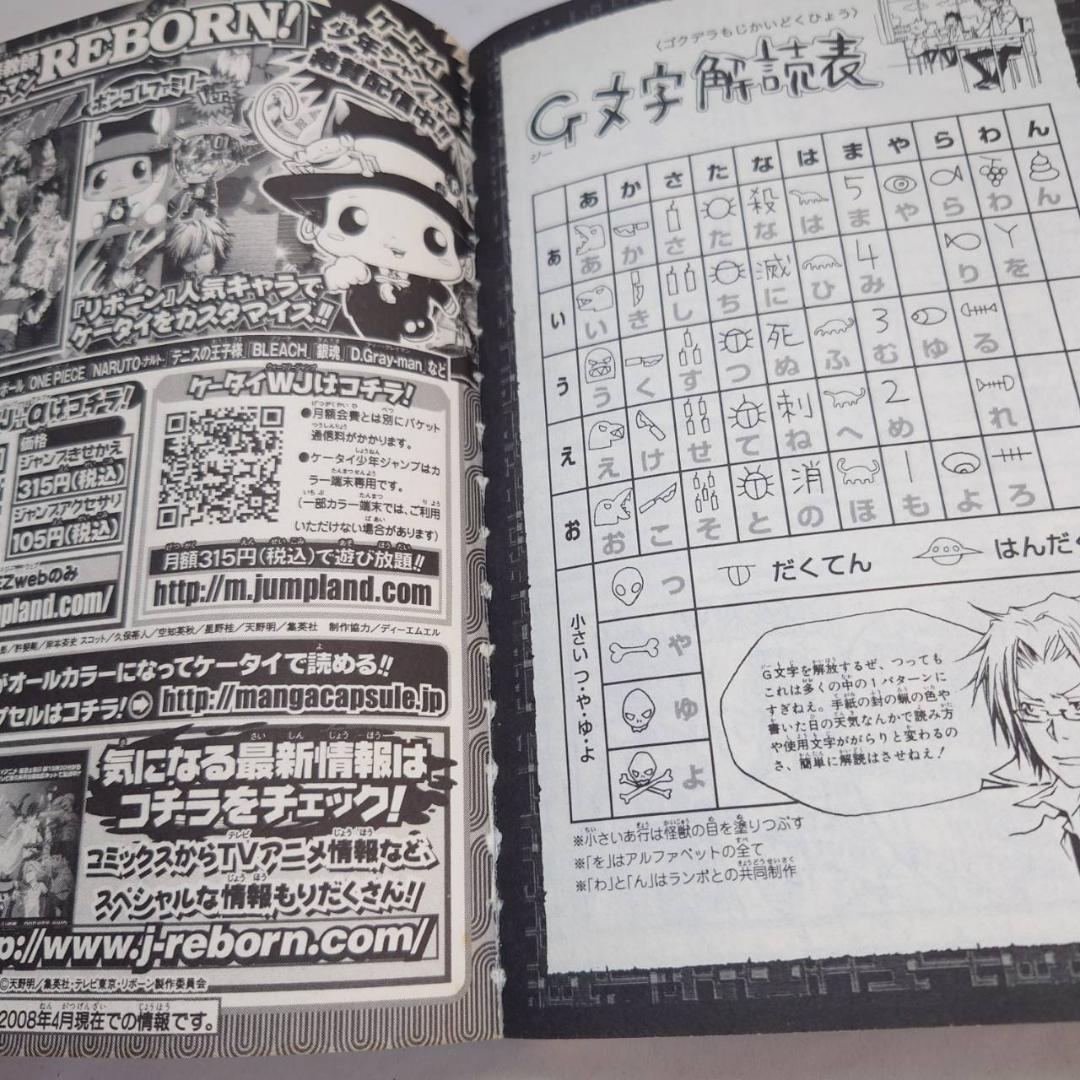 REBORN!
ボンゴレファミリー
Ver.
ケータイ
少年ジャンプで
絶賛配信中!!
『リボーン』人気キャラで
ケータイをカスタマイズ!!
ONE PIECE NARUTO-ナルト- テニスの王子様 BLEACH 銀魂 D.Gray-man など
はコチラ!
価格
ジャンプきせかえ
315円(税込)
ジャンプアクセサリ
105円(税込)
EZwebのみ
ケータイWJはコチラ!
●月額会費とは別にパケット
通信料がかかります。
●ケータイ少年ジャンプはカ
ラー端末専用です。
(一部カラー端末では、ご利用
いただけない場合があります)
月額315円(税込)で遊び放題!!
http://m.jumpland.com
空知英秋/星野桂/天野明/集英社 制作協力/ディーエムエル
がオールカラーになってケータイで読める!!
プセルはコチラ! http://mangacapsule.jp
気になる最新情報は
コチラをチェック!
コミックスからTVアニメ情報など、
スペシャルな情報もりだくさん!
p://www.j-reborn.com/
©天野明/集英社・テレビ東京・リボーン製作委員会
2008年4月現在での情報です。
〈ゴクデラもじかいどくひょう〉
G文字解読表
ジー
あ か さ た な は ま や ら わ ん
あ あ か さ た 殺 な は 5 ま や ら わ ん
い い き し ち 滅 に ひ 4 み り を
う う く す つ 死 ぬ ふ 3 む ゆ る
え え け せ て 刺 ね へ 2 め れ
お お こ そ と 消 の ほ 1 も よ ろ
小さい つ・や・ゆ・よ
つ
や
ゆ
よ
だくてん
はんだく
G文字を解放するぜ、つっても
これは多くの中の1パターンに
すぎねえ。手紙の封の蝋の色や
書いた日の天気なんかで読み方
や使用文字ががらりと変わるの
さ、簡単に解読はさせねえ!
※小さいあ行は怪獣の目を塗りつぶす
※「を」はアルファベットの全て
※「わ」と「ん」はランボとの共同制作